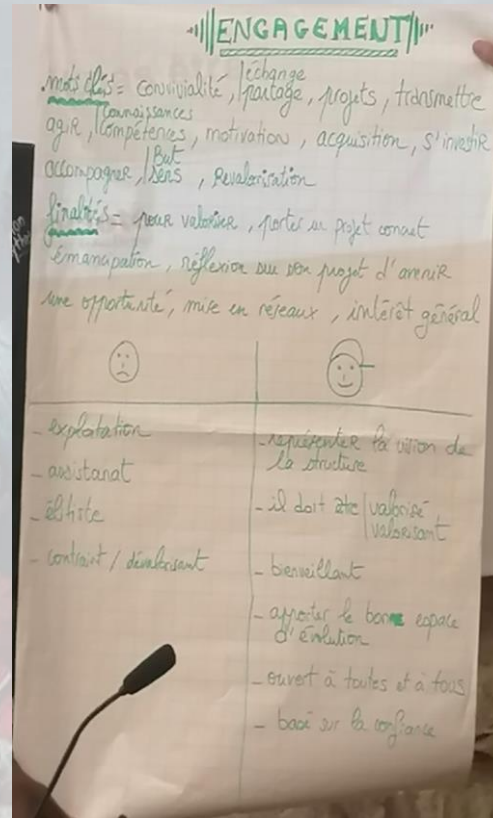 ENGAGEMENT
mots clés = convivialité, échange partage, projets, transmettre
agir, connaissances compétences, motivation, acquisition, s'investir
accompagner, But sens, revalorisation
finalités = pour valoriser, porter un projet concret
émancipation, réflexion sur son projet d'avenir
une opportunité, mise en réseaux, intérêt général
- exploitation
- assistanat
- élitiste
- contraint / dévalorisant
- représenter la vision de
la structure
- il doit être valorisé
valorisant
- bienveillant
- apporter le bon espace
d'évolution
- ouvert à toutes et à tous
- basé sur la confiance